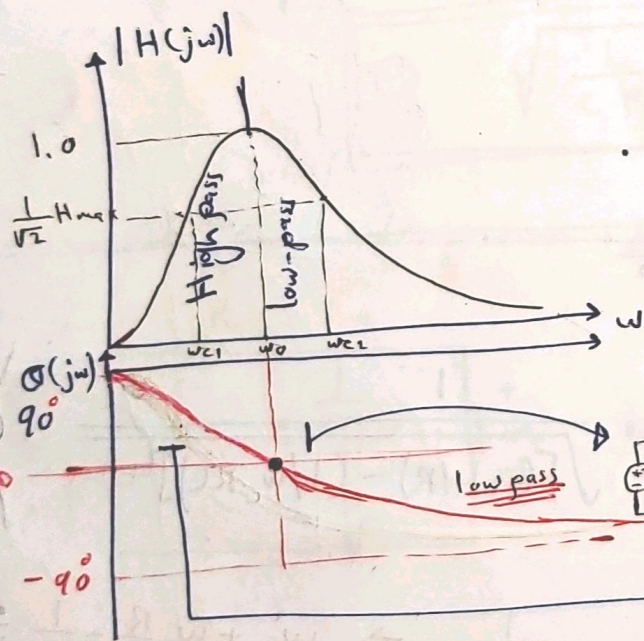 |H(jw)|
1.0
1/√2 Hmax
High pass
low-pass
wc1 w0 wc2
w
θ(jw)
90°
0
low pass
-90°